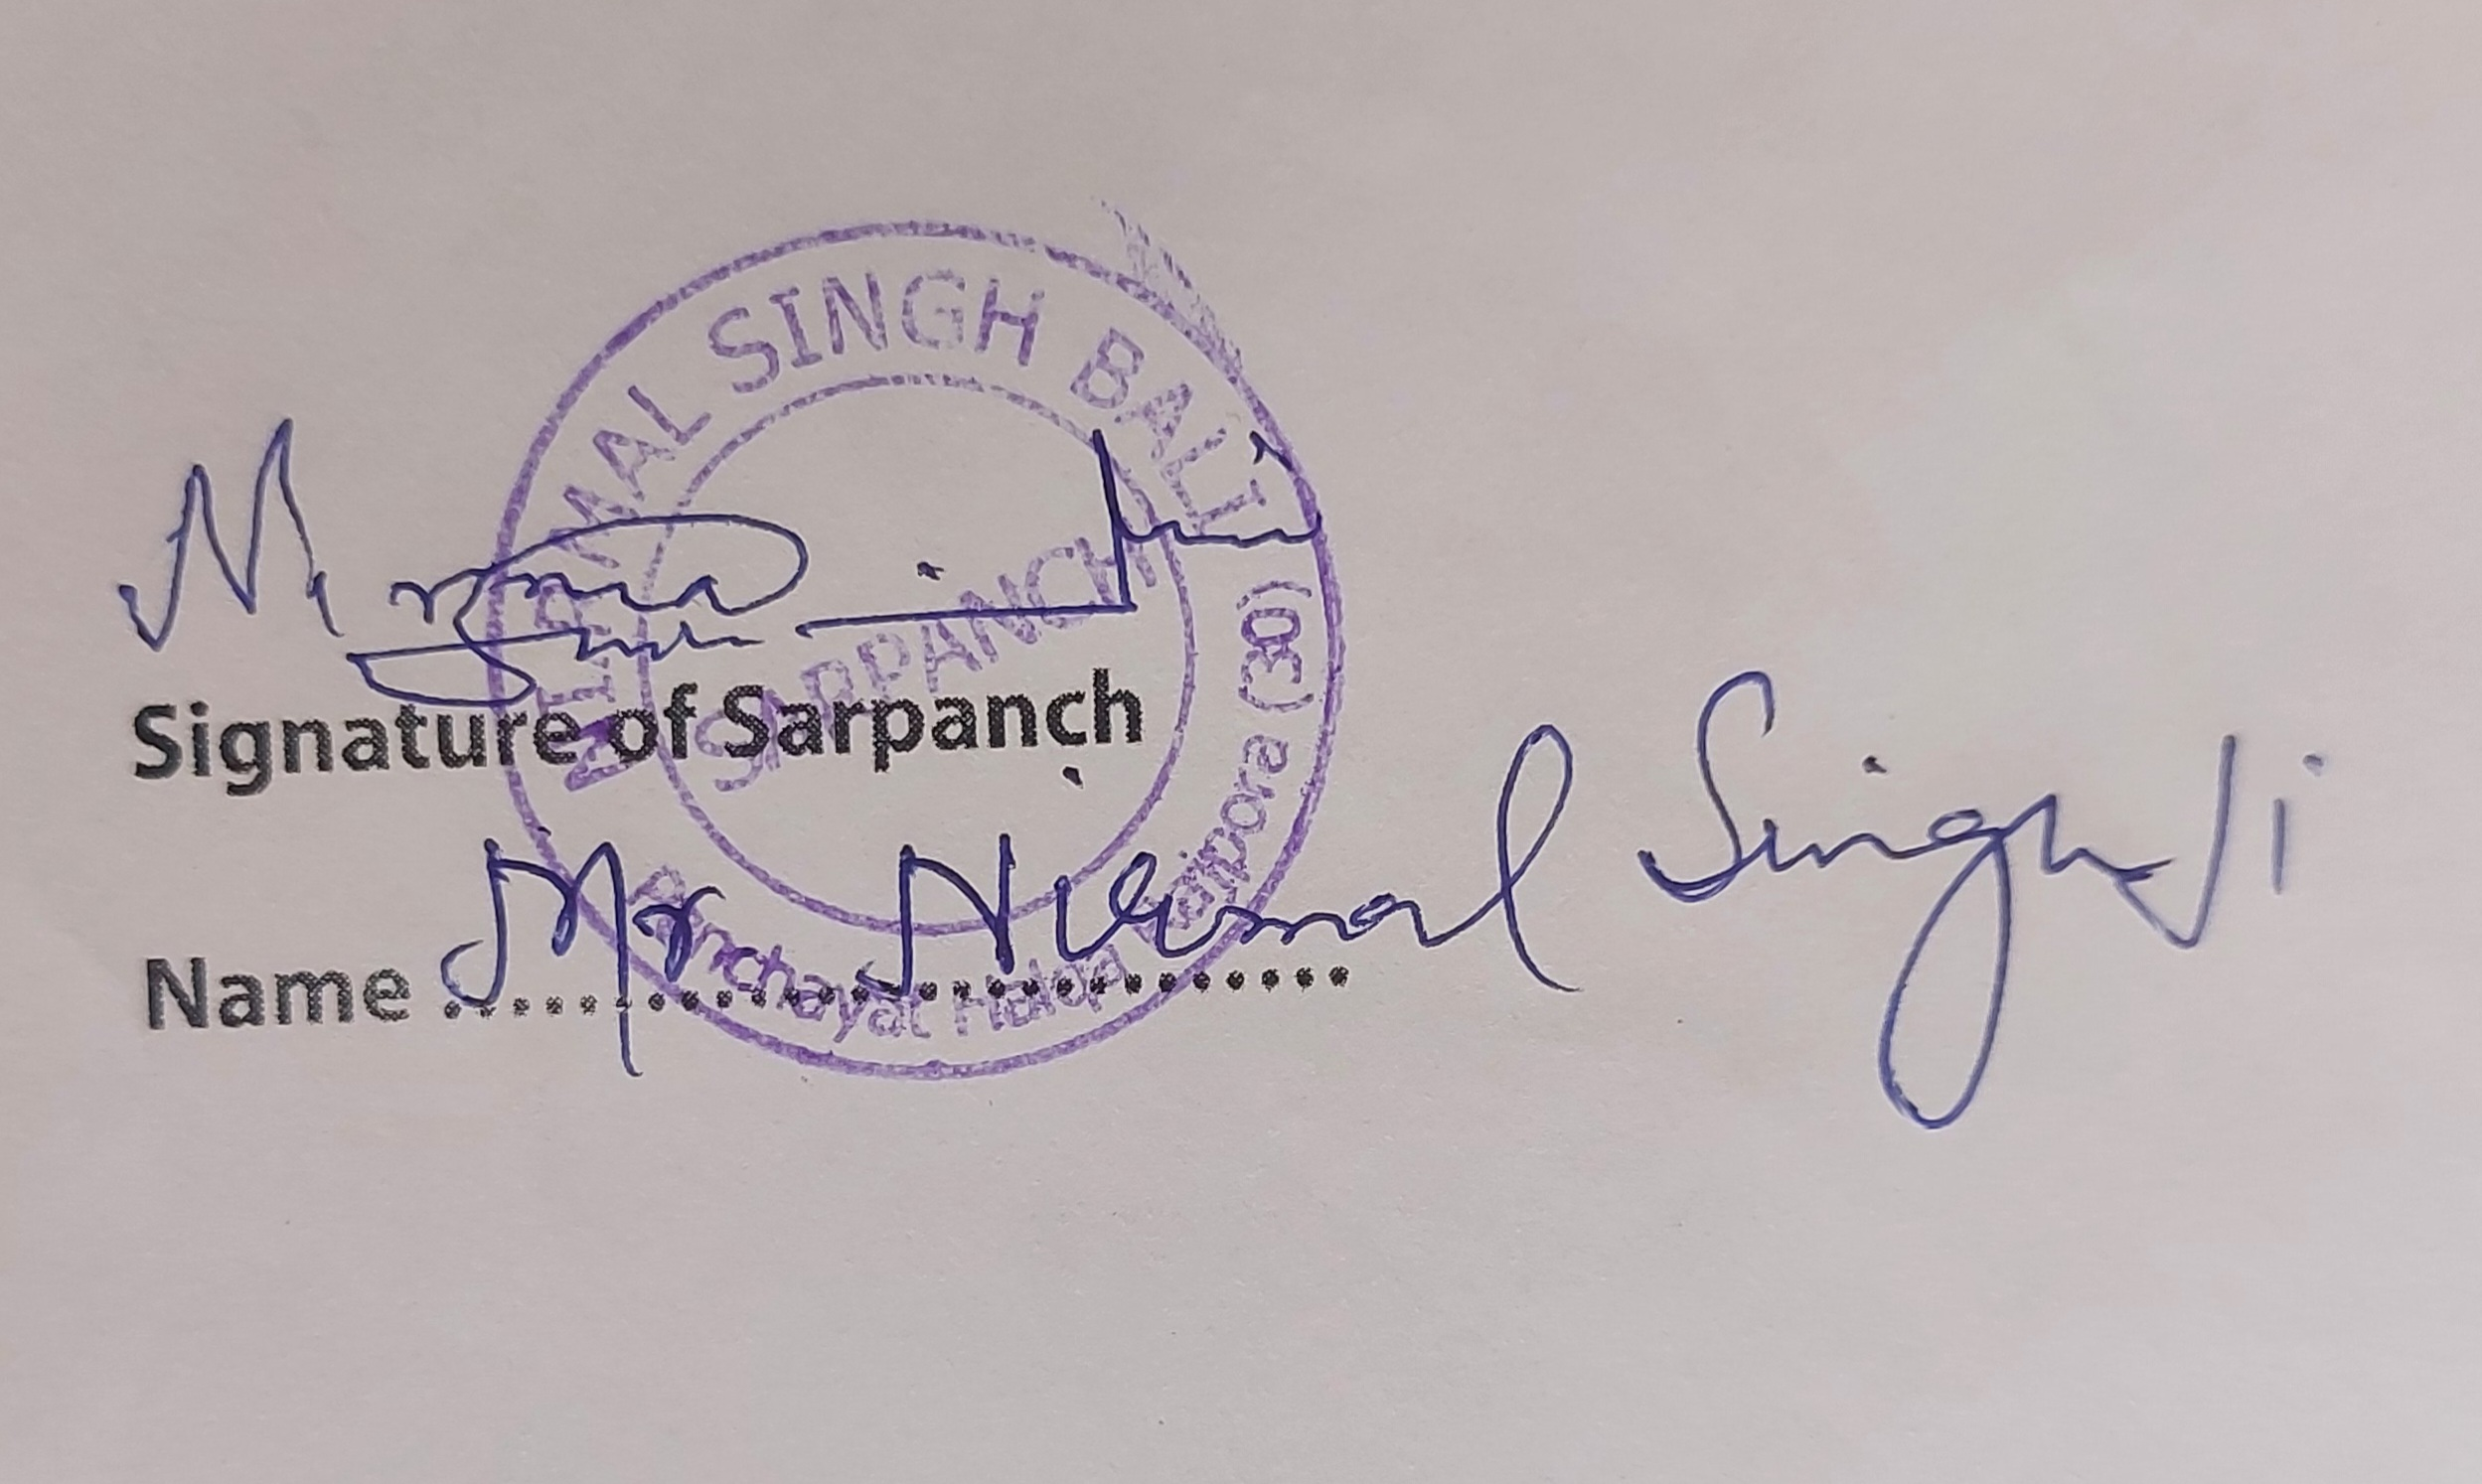 NIRMAL SINGH BALI
SARPANCH
Panchayat Halqa Raipora (30)
Signature of Sarpanch
Name ....................
Mr Nirmal Singh Ji